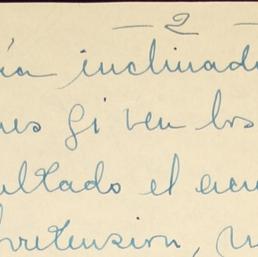 - 2 -
ía inclinad
nes si ven los
ultado el acu
pretension, n